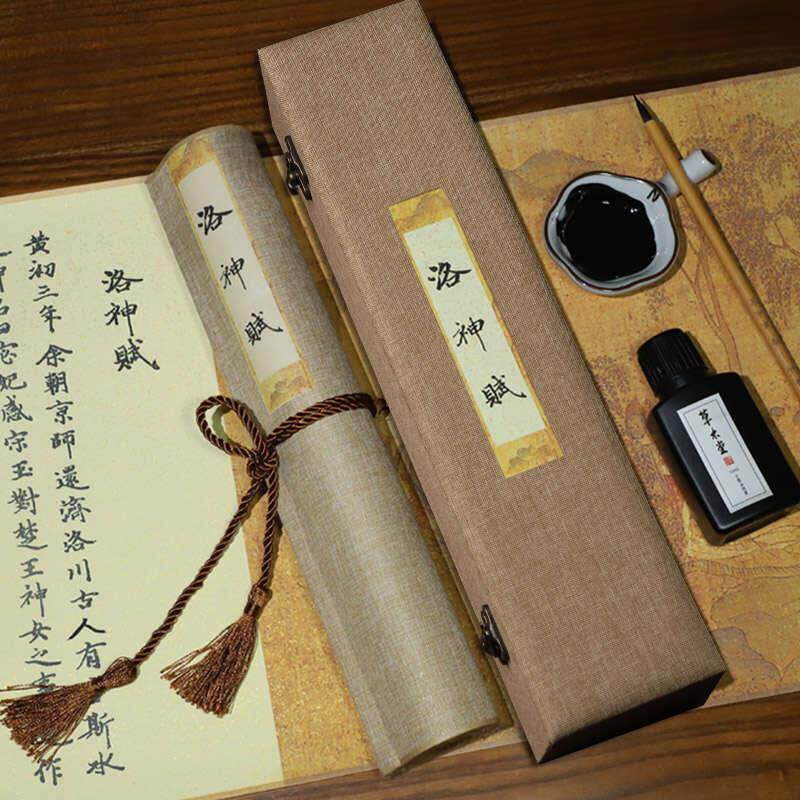 洛神賦
洛神賦
草木堂
洛神賦
黄初三年余朝京師還濟洛川古人有斯水
神名曰宓妃感宋玉對楚王神女之事作